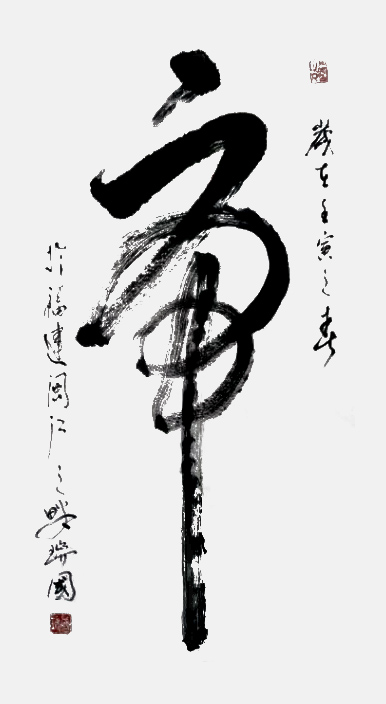 歲在壬寅之春
虎
於福建閩江之畔瑞國